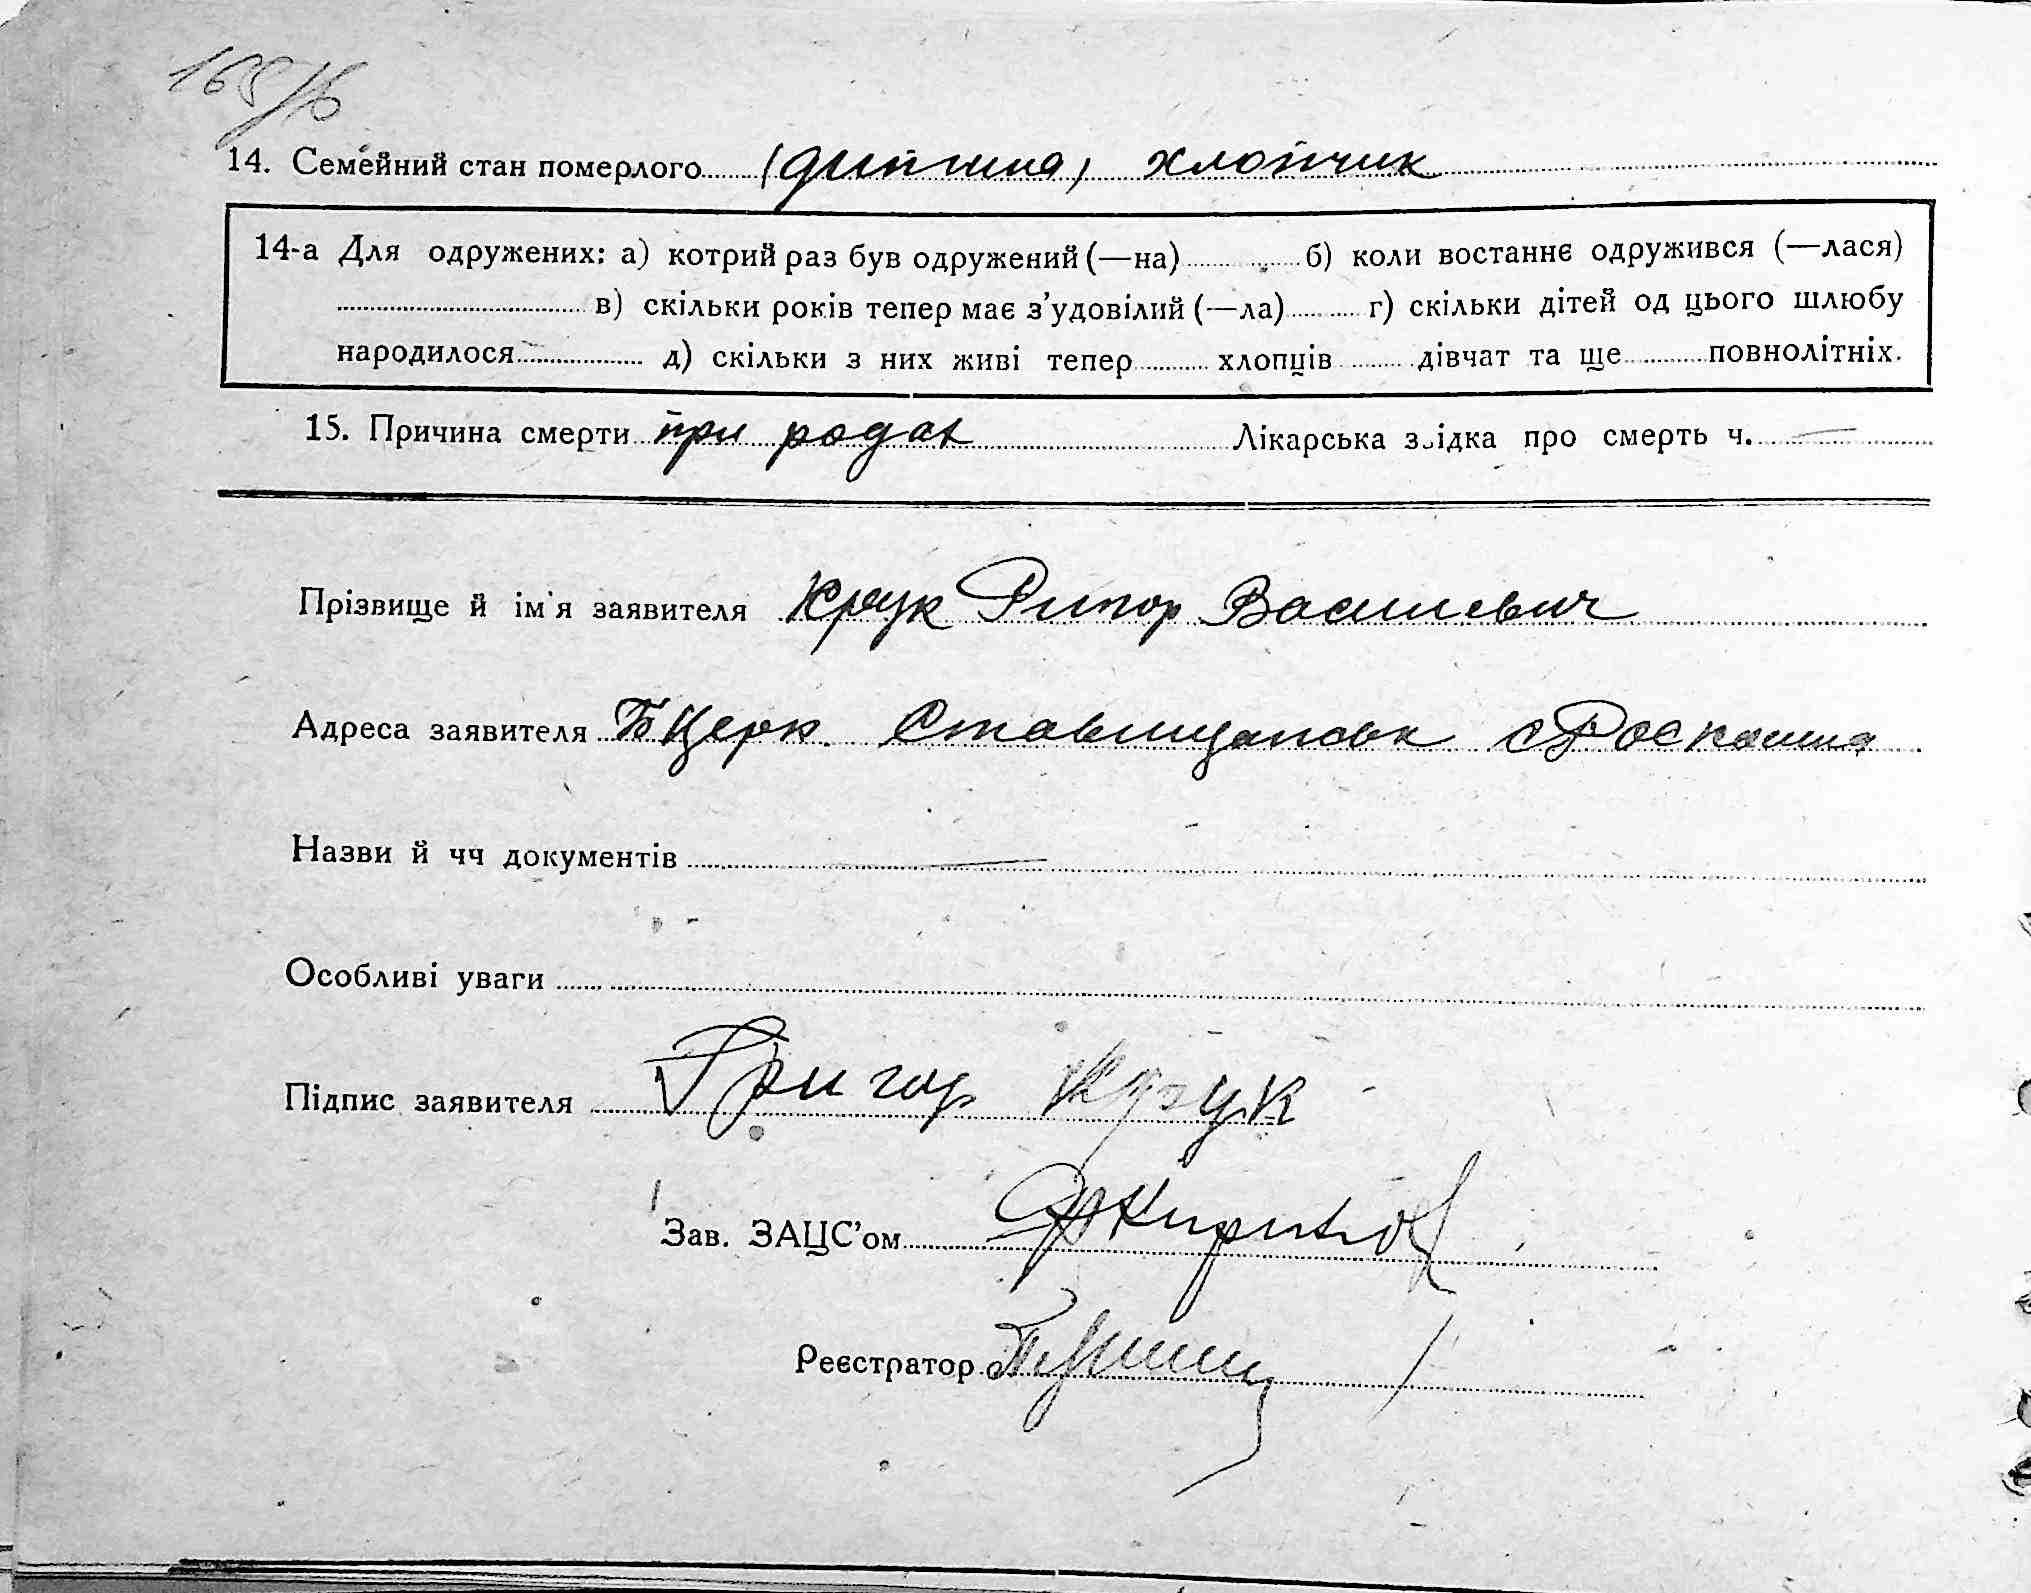 14. Семейний стан померлого (дитина) хлопчик
14-а Для одружених: а) котрий раз був одружений (—на) б) коли востаннє одружився (—лася)
в) скільки років тепер має з'удовілий (—ла) г) скільки дітей од цього шлюбу
народилося д) скільки з них живі тепер хлопців дівчат та ще повнолітніх.
15. Причина смерти при родах Лікарська звідка про смерть ч. —
Прізвище й ім'я заявителя Крук Григор Василевич
Адреса заявителя БЦерк. Ставищанськ с Роскошна
Назви й чч документів —
Особливі уваги
Підпис заявителя Григор Крук
Зав. ЗАЦС'ом
Реєстратор